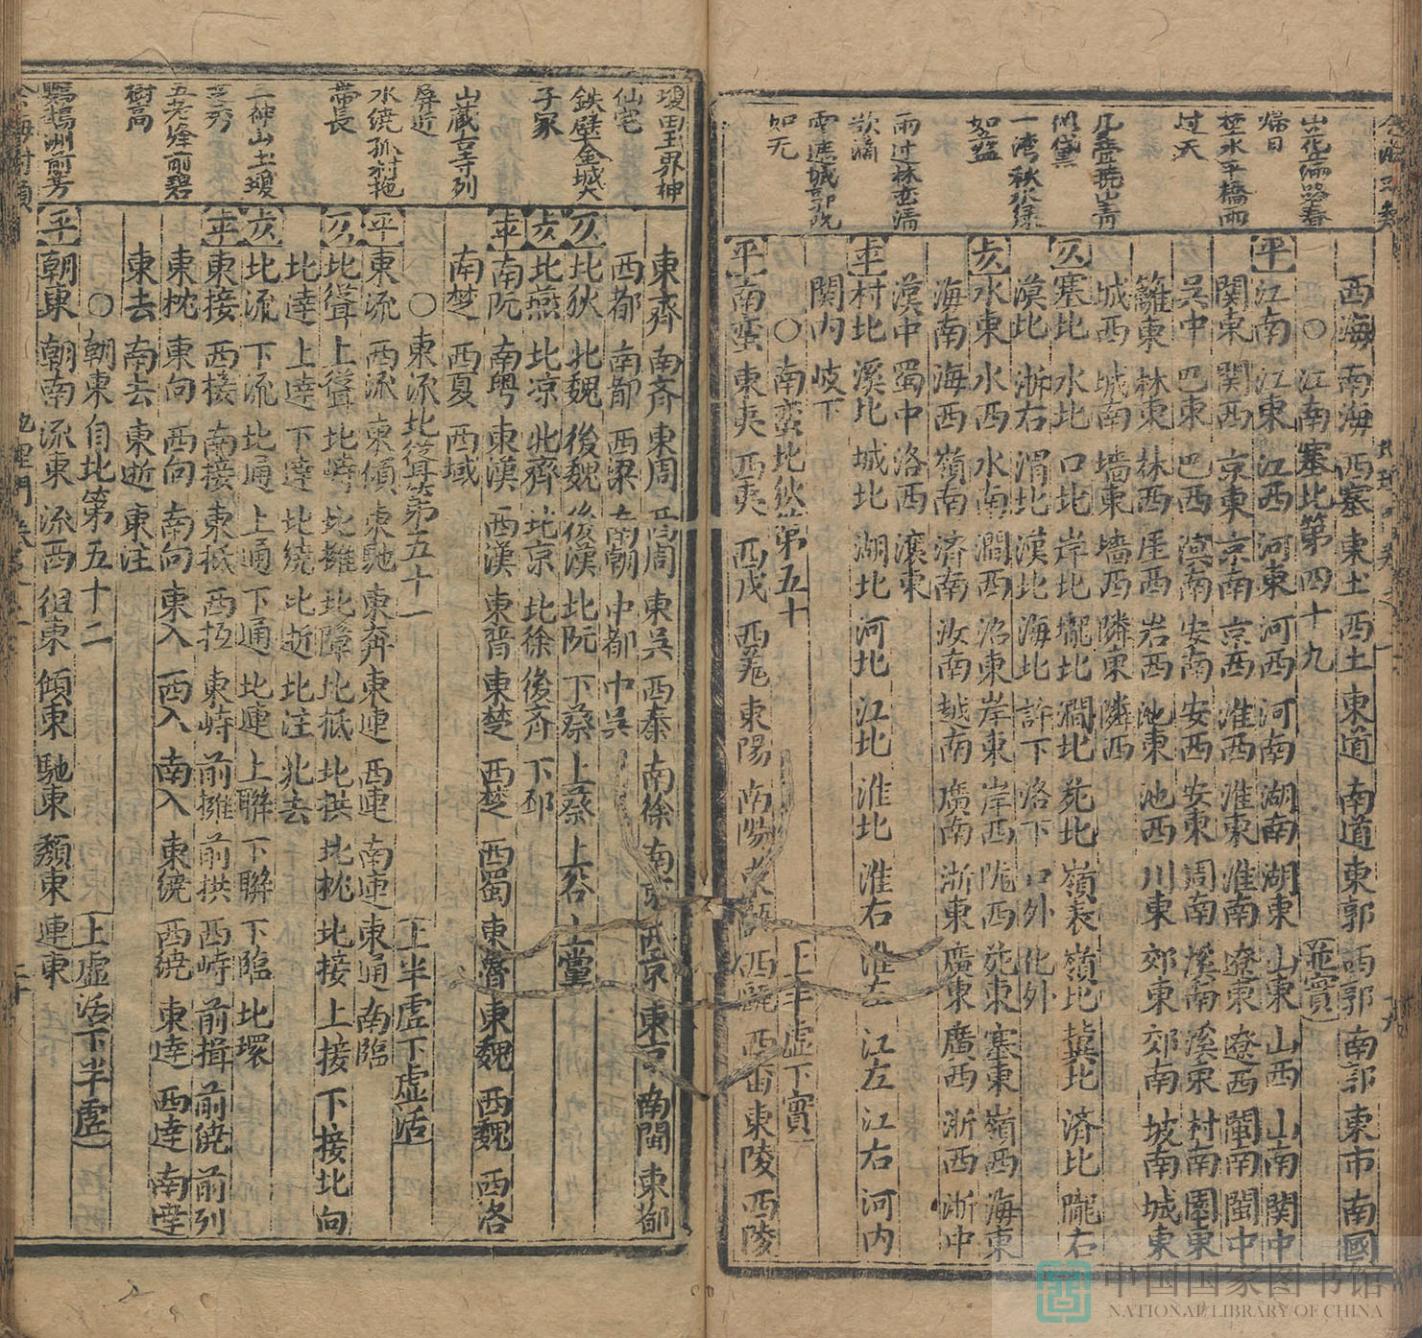 山花兩路春
歸日
橋雨
過天
几疊曉山青
似黛
一湾秋水緑
如藍
雨过林峦濡
欲滴
雲遮城郭晓
如无
西海 南海 西塞 東土 西土 東道 南道 東郭 西郭 南郭 東市 南國
○江南塞北第四十九 並實
平 江南 江東 江西 河東 河西 河南 湖南 湖東 山東 山西 山南 関中
関東 関西 京東 京南 京西 淮西 淮東 淮南 遼東 遼西 閩南 閩中
吳中 巴東 巴西 滇南 安南 安西 安東 周南 溪南 溪東 村南 園東
籬東 林東 林西 屋西 岩西 池東 池西 川東 郊東 郊南 坡南 城東
城西 城南 墻東 墻西 隣東 隣西
仄 塞北 水北 口北 岸北 壠北 澗北 苑北 嶺表 嶺北 冀北 済北 隴右
漠北 浙右 渭北 漢北 海北 許下 洛下 口外 化外
去 水東 水西 水南 澗西 沼東 岸東 岸西 隴西 苑東 塞東 嶺西 海東
海南 海西 嶺南 済南 汝南 越南 廣南 浙東 廣東 廣西 浙西 浙中
漢中 蜀中 洛西 瀼東
平 村北 溪北 城北 湖北 河北 江北 淮北 淮右 淮左 江左 江右 河内
関内 岐下
○南蛮北狄第五十 上半虚下實
平 南蛮 東夷 西夷 西戎 西羗 東陽 南陽 東甌 西甌 西畨 東陵 西陵
壇田玉界神
仙宅
鉄壁金城天
子家
山藏古寺列
屏近
水绕孤村拖
帶長
三神山玉壇
芝秀
五老峰前碧
樹高
鸚鵡洲前芳
東齊 南齊 東周 西周 東吳 西秦 南徐 南京 西京 東京 南閩 東都
西都 南都 西梁 南朝 中都 中吳
仄 北狄 北魏 後魏 後漢 北阮 下蔡 上蔡 上谷 上黨
去 北燕 北凉 北齊 北京 北徐 後齐 下邳
平 南阮 南粤 東漢 西漢 東晋 東楚 西楚 西蜀 東魯 東魏 西魏 西洛
南楚 西夏 西域
○東流北聳第五十一 上半虚下虚活
平 東流 西流 東傾 東馳 東奔 東連 西連 南連 東通 南臨
仄 北聳 上聳 北峙 北擁 北障 北抵 北拱 北枕 北接 上接 下接 北向
北達 上達 下達 北绕 北逝 北注 北去
去 北流 下流 北通 上通 下通 北連 上聯 下聯 下臨 北環
平 東接 西接 南接 東抵 西抵 東峙 前擁 前拱 西峙 前揖 前绕 前列
東枕 東向 西向 南向 東入 西入 南入 東绕 西绕 東達 西達 南達
東去 南去 東逝 東注
○朝東自北第五十二 上虚活下半虚
平 朝東 朝南 流東 流西 徂東 傾東 馳東 頽東 連東
地理門
中国国家图书馆
NATIONAL LIBRARY OF CHINA